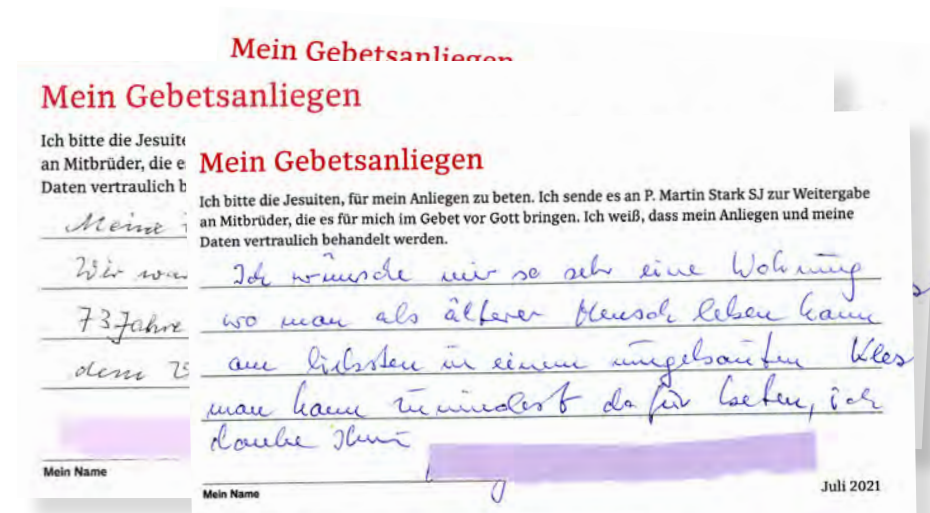 Mein Gebetsanliegen
Mein Gebetsanliegen
Ich bitte die Jesuite
an Mitbrüder, die e
Daten vertraulich b
Meine
Wir war
73 Jahre
dem
Mein Name
Mein Gebetsanliegen
Ich bitte die Jesuiten, für mein Anliegen zu beten. Ich sende es an P. Martin Stark SJ zur Weitergabe
an Mitbrüder, die es für mich im Gebet vor Gott bringen. Ich weiß, dass mein Anliegen und meine
Daten vertraulich behandelt werden.
Ich wünsche mir so sehr eine Wohnung
wo man als älterer Mensch leben kann
am liebsten in einem umgebauten Klos
man kann zumindest dafür beten, ich
danke Ihnen
Mein Name
Juli 2021